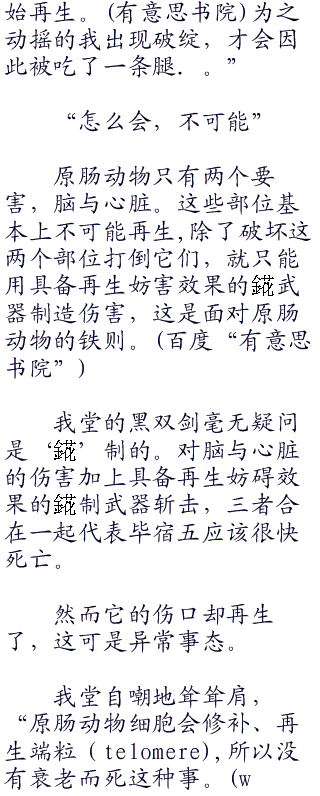 始再生。(有意思书院)为之
动摇的我出现破绽，才会因
此被吃了一条腿．。”
“怎么会，不可能”
原肠动物只有两个要
害，脑与心脏。这些部位基
本上不可能再生,除了破坏这
两个部位打倒它们，就只能
用具备再生妨害效果的錵武
器制造伤害，这是面对原肠
动物的铁则。(百度“有意思
书院”)
我堂的黑双剑毫无疑问
是‘錵’制的。对脑与心脏
的伤害加上具备再生妨碍效
果的錵制武器斩击，三者合
在一起代表毕宿五应该很快
死亡。
然而它的伤口却再生
了，这可是异常事态。
我堂自嘲地耸耸肩，
“原肠动物细胞会修补、再
生端粒（telomere),所以没
有衰老而死这种事。(w